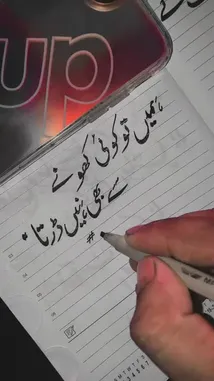 up
ہمیں تو کوئی کھونے
سے بھی نہیں ڈرتا
#